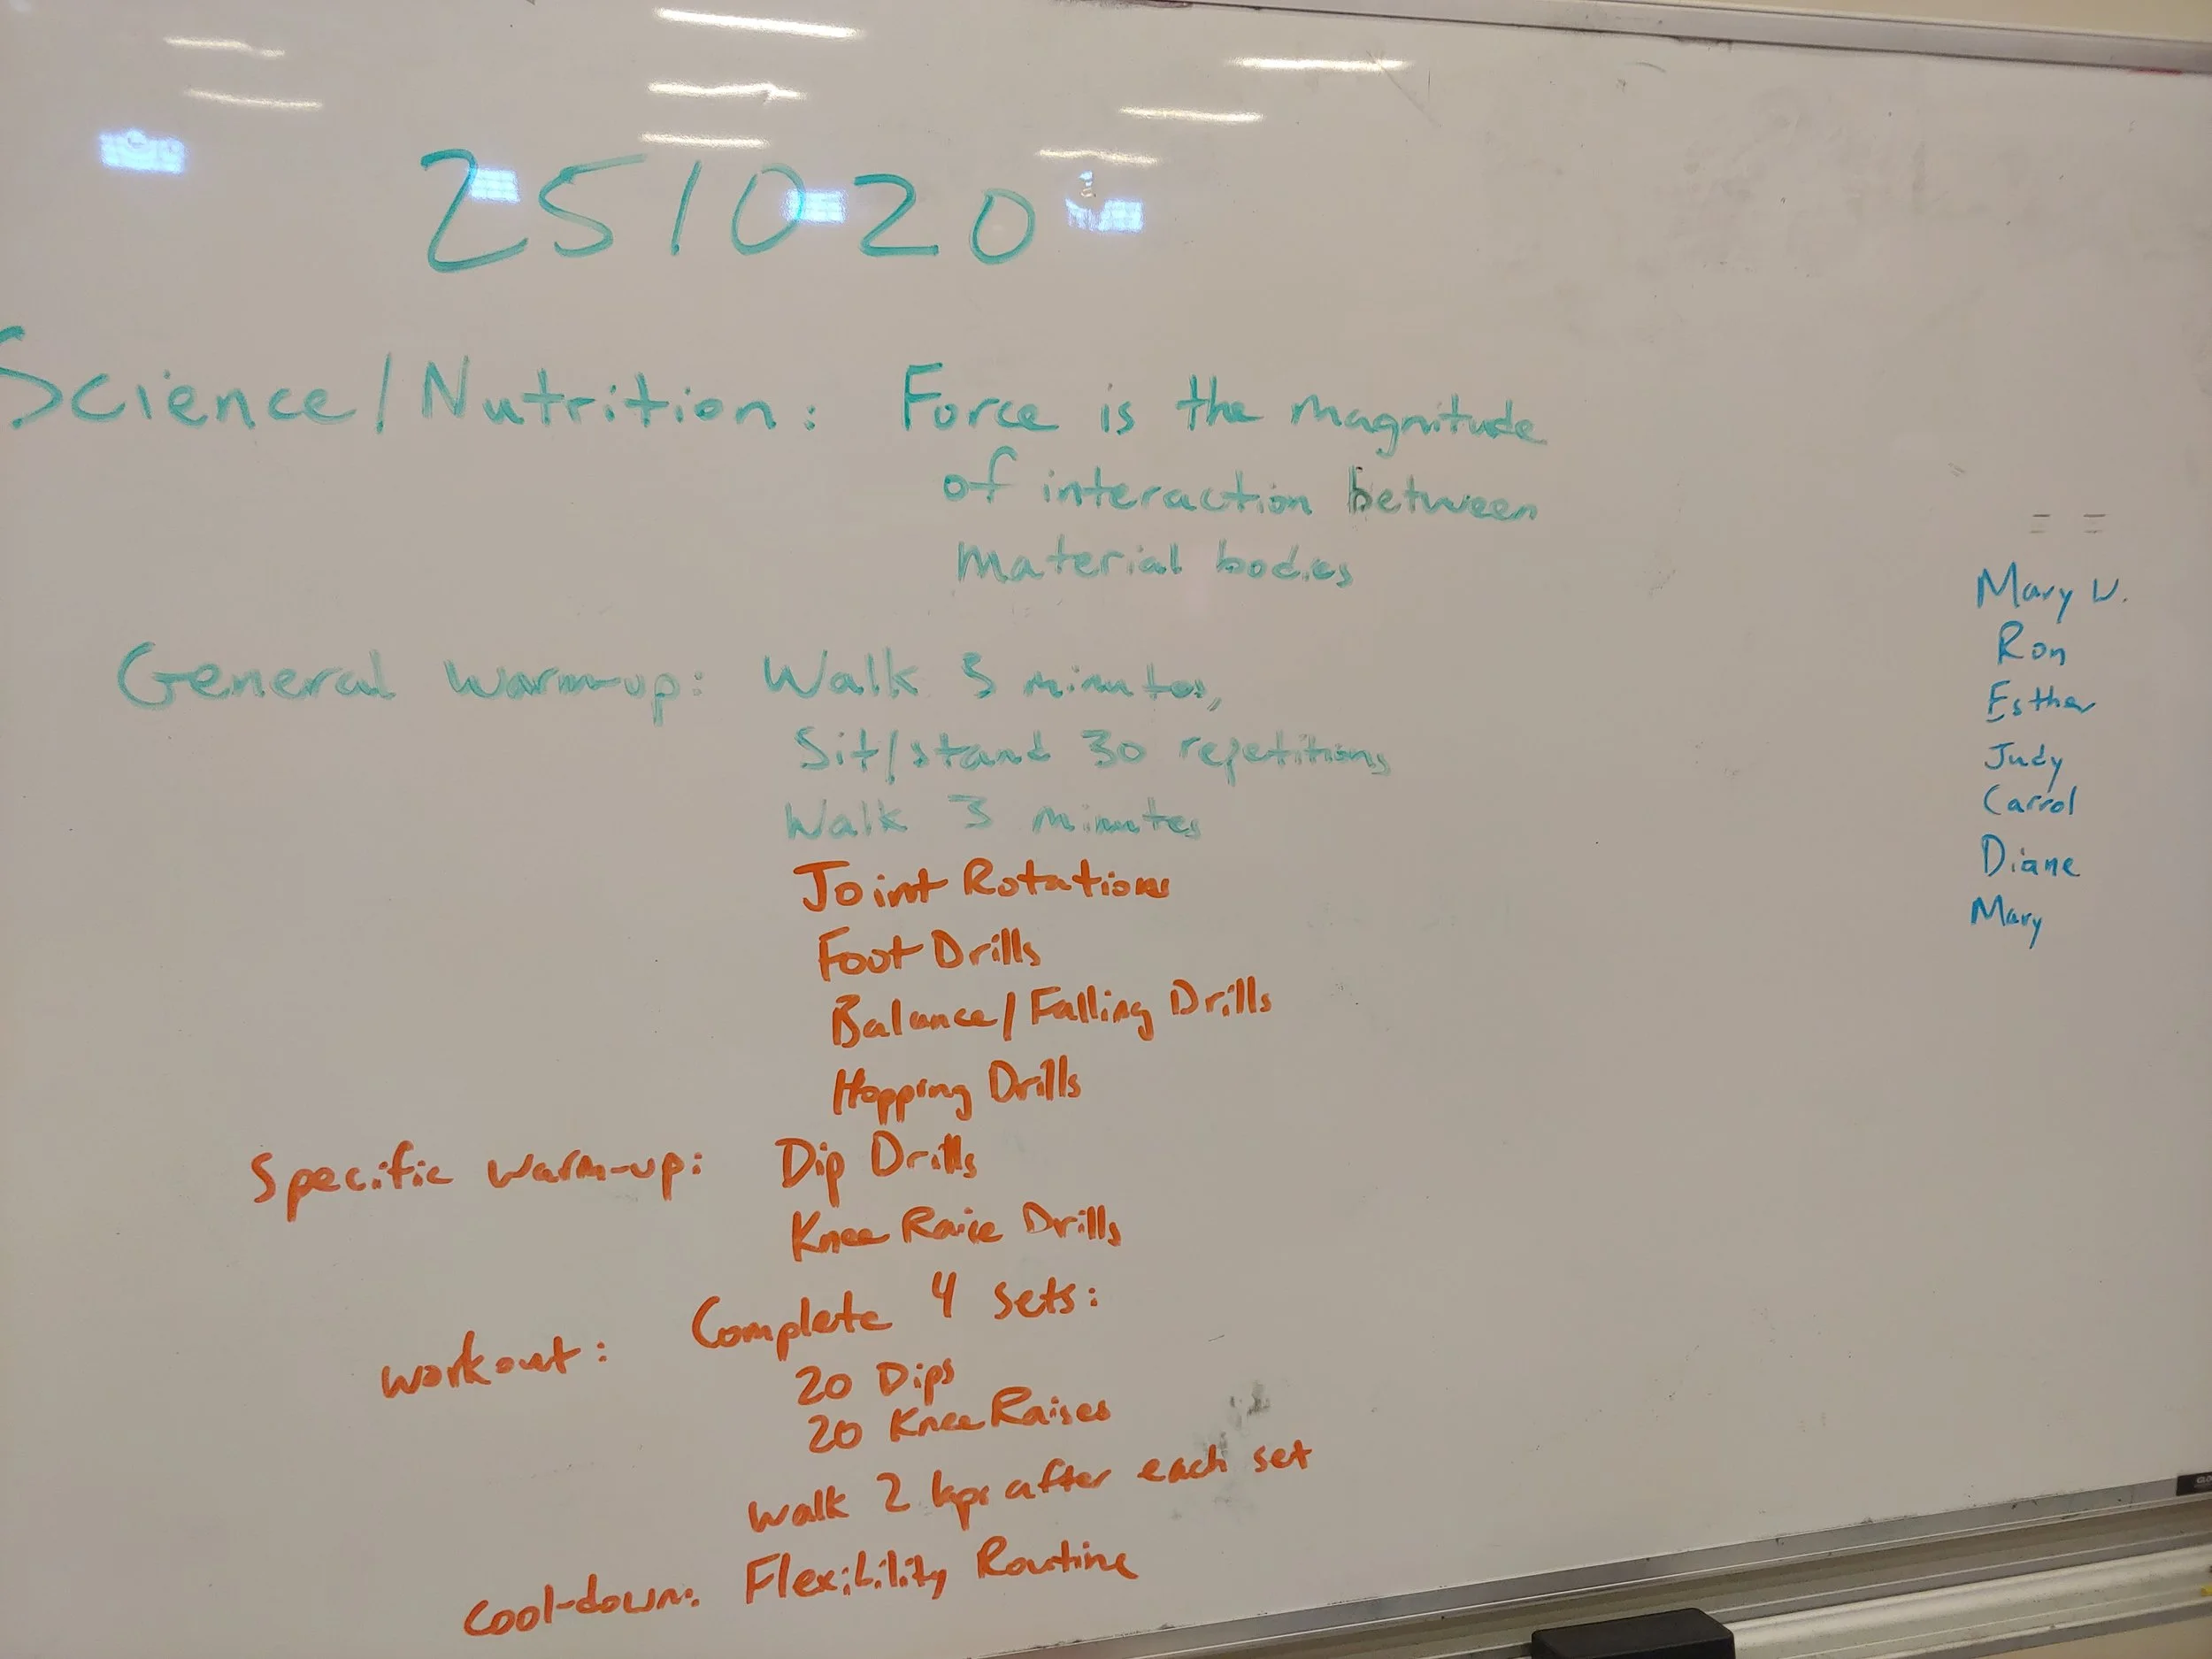 251020
Science/Nutrition: Force is the magnitude
of interaction between
material bodies
General warm-up: Walk 3 minutes,
Sit/stand 30 repetitions
Walk 3 minutes
Joint Rotations
Foot Drills
Balance/Falling Drills
Hopping Drills
Specific warm-up: Dip Drills
Knee Raise Drills
Workout: Complete 4 sets:
20 Dips
20 Knee Raises
Walk 2 laps after each set
Cool-down: Flexibility Routine
Mary W.
Ron
Esther
Judy
Carrol
Diane
Mary